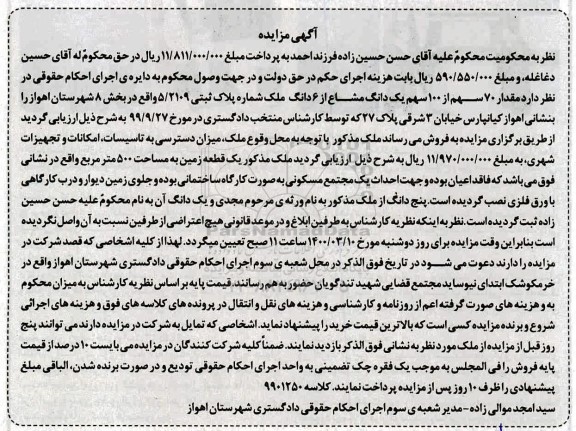 آگهی مزایده
نظر به محکومیت محکومٌ علیه آقای حسن حسین زاده فرزند احمد به پرداخت مبلغ ۱۱/۸۱۱/۰۰۰/۰۰۰ ریال در حق محکومٌ له آقای حسین
دغاغله، و مبلغ ۵۹۰/۵۵۰/۰۰۰ ریال بابت هزینه اجرای حکم در حق دولت و در جهت وصول محکوم به دایره ی اجرای احکام حقوقی در
نظر دارد مقدار ۷۰ سهم از ۱۰۰ سهم یک دانگ مشاع از ۶ دانگ ملک شماره پلاک ثبتی ۵/۲۱۰۹ واقع در بخش ۸ شهرستان اهواز را
بنشانی اهواز کیانپارس خیابان ۳ شرقی پلاک ۲۷ که توسط کارشناس منتخب دادگستری در مورخ ۹۹/۹/۲۷ به شرح ذیل ارزیابی گردید
از طریق برگزاری مزایده به فروش می رساند ملک مذکور با توجه به محل وقوع ملک، میزان دسترسی به تاسیسات، امکانات و تجهیزات
شهری، به مبلغ ۱۱/۹۷۰/۰۰۰/۰۰۰ ریال به شرح ذیل ارزیابی گردید ملک مذکور یک قطعه زمین به مساحت ۵۰۰ متر مربع واقع در نشانی
فوق می باشد که فاقد اعیان بوده و جهت احداث یک مجتمع مسکونی به صورت کارگاه ساختمانی بوده و جلوی زمین دیوار و درب کارگاهی
با ورق فلزی نصب گردیده است. پنج دانگ از ملک مذکور به نام ورثه ی مرحوم مجدی و یک دانگ آن به نام محکومٌ علیه حسن حسین
زاده ثبت گردیده است. نظر به اینکه نظریه کارشناس به طرفین ابلاغ و در موعد قانونی هیچ اعتراضی از طرفین نسبت به آن واصل نگردیده
است بنابراین وقت مزایده برای روز دوشنبه مورخ ۱۴۰۰/۰۳/۱۰ ساعت ۱۱ صبح تعیین میگردد. لهذا از کلیه اشخاصی که قصد شرکت در
مزایده را دارند دعوت می شود در تاریخ فوق الذکر در محل شعبه ی سوم اجرای احکام حقوقی دادگستری شهرستان اهواز واقع در
خرمکوشک ابتدای نیوساید مجتمع قضایی شهید تندگویان حضور به هم رسانند. قیمت پایه بر اساس نظریه کارشناس به میزان محکوم
به و هزینه های صورت گرفته اعم از روزنامه و کارشناسی و هزینه های نقل و انتقال در پرونده های کلاسه های فوق و هزینه های اجرائی
شروع و برنده مزایده کسی است که بالاترین قیمت خرید را پیشنهاد نماید. اشخاصی که تمایل به شرکت در مزایده دارند می توانند پنج
روز قبل از مزایده از ملک مورد نظر به نشانی فوق الذکر بازدید نمایند. ضمناً کلیه شرکت کنندگان در مزایده می بایست ۱۰ درصد از قیمت
پایه فروش را فی المجلس به موجب یک فقره چک تضمینی به واحد اجرای احکام حقوقی تودیع و در صورت برنده شدن، الباقی مبلغ
پیشنهادی را ظرف ۱۰ روز پس از مزایده پرداخت نمایند. کلاسه ۹۹۰۱۲۵۰
سید امجد موالی زاده - مدیر شعبه ی سوم اجرای احکام حقوقی دادگستری شهرستان اهواز
ParsNamadData